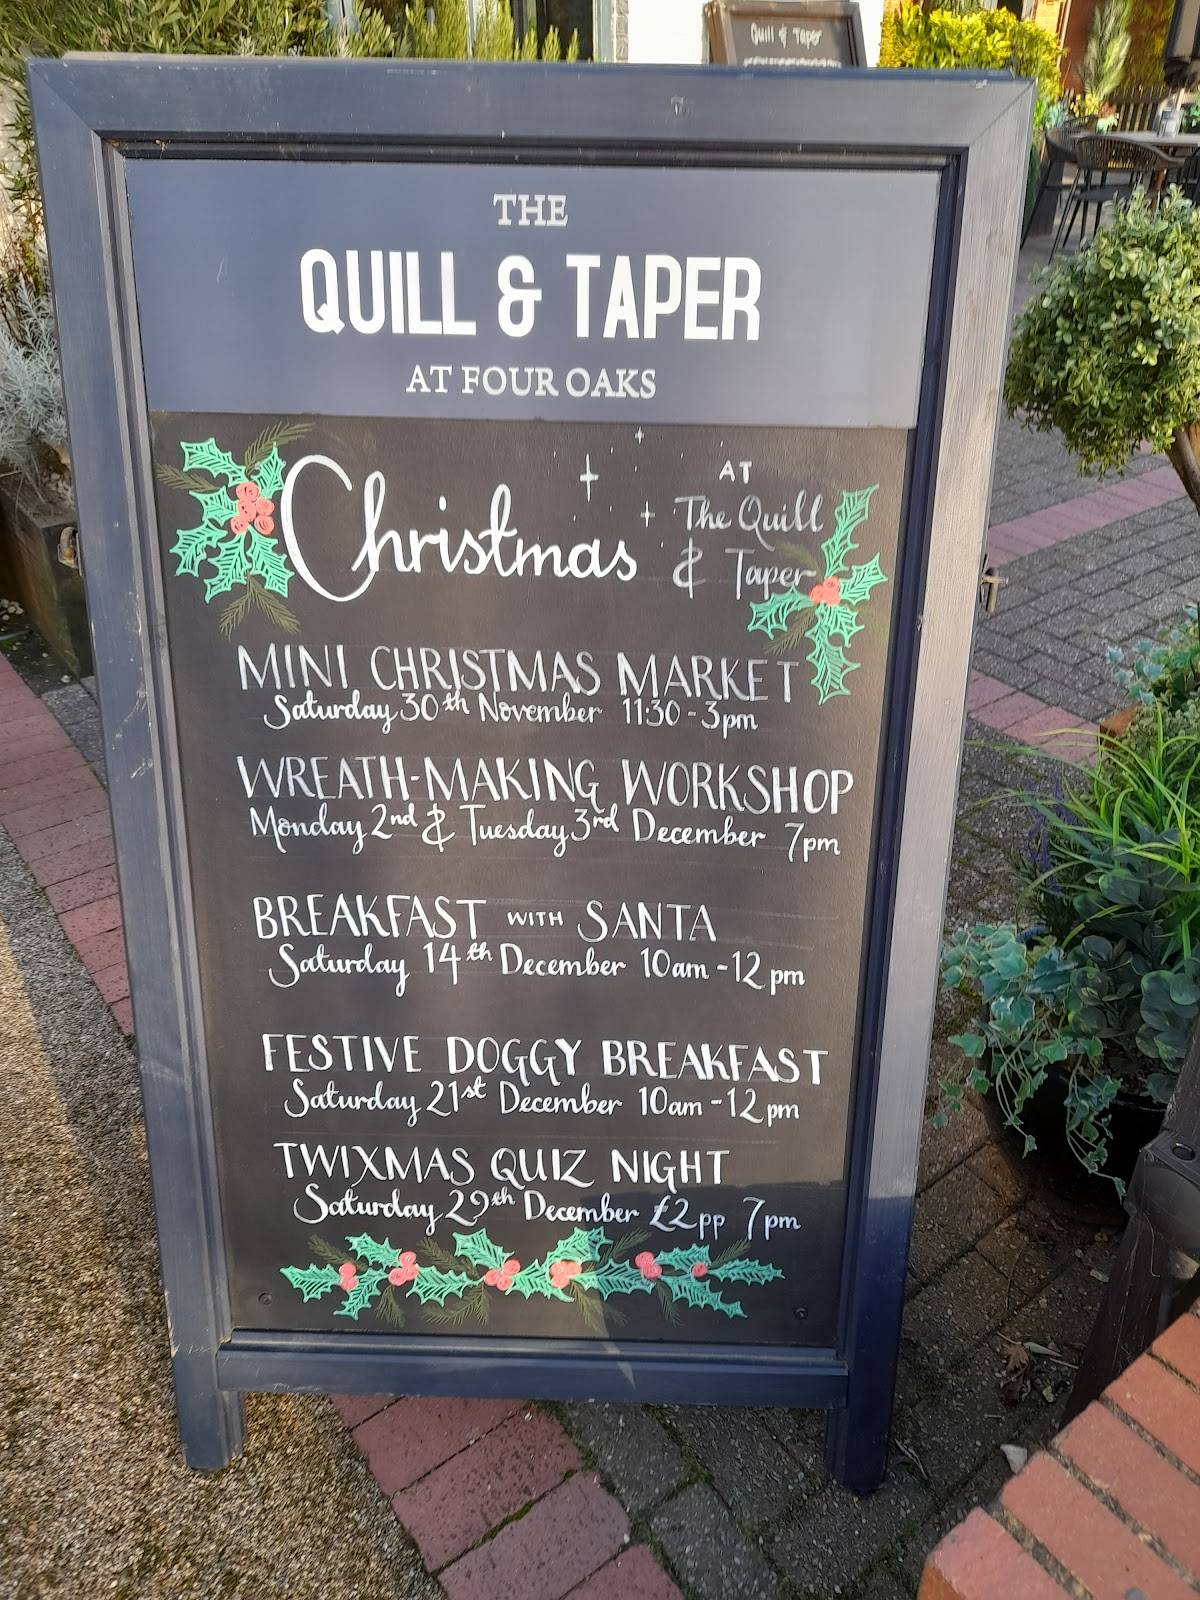 Quill & Taper
THE
QUILL & TAPER
AT FOUR OAKS
Christmas
AT
The Quill
& Taper
MINI CHRISTMAS MARKET
Saturday 30th November 11:30 - 3pm
WREATH-MAKING WORKSHOP
Monday 2nd & Tuesday 3rd December 7pm
BREAKFAST WITH SANTA
Saturday 14th December 10am - 12pm
FESTIVE DOGGY BREAKFAST
Saturday 21st December 10am - 12pm
TWIXMAS QUIZ NIGHT
Saturday 29th December £2pp 7pm